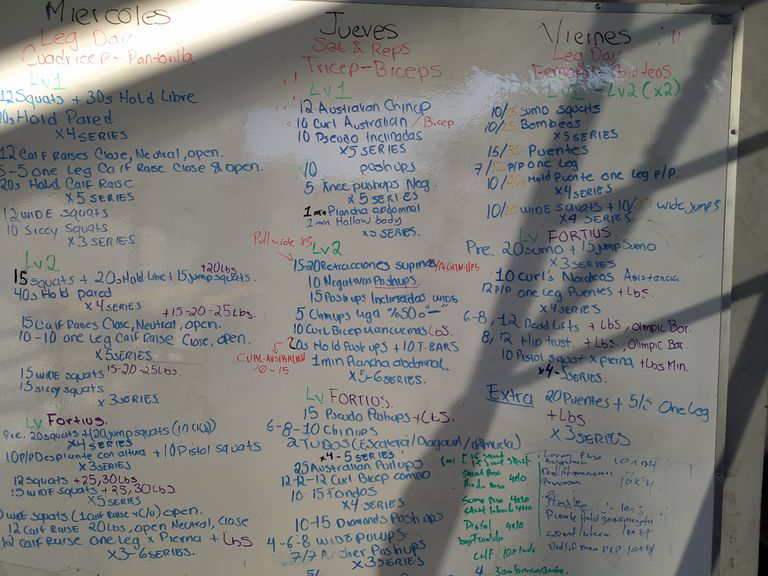 Miercoles
Leg Day
Cuadricep - Pantorilla
Lv1
12 Squats + 30s Hold Libre
Hold Pared
x4 SERIES
12 Calf Raises Close, Neutral, open.
5-5 one Leg Calf Raise Close & open.
20s Hold Calf Raise
x5 SERIES
12 WIDE squats
10 Siccy Squats
x3 SERIES
Lv2
+20Lbs
15 squats + 20s Hold Libre + 15 jump squats.
40s Hold pared
x4 SERIES
+15-20-25Lbs.
15 Calf Raises Close, Neutral, open.
10-10 one Leg Calf Raise Close, open.
x5 SERIES
15 WIDE squats 15-20-25Lbs
15 siccy squats
x3 SERIES.
Lv Fortius.
Pre. 20 squats + 20 jump squats
x4 SERIES
10 P/P desplante con altura + 10 Pistol squats
x3 SERIES
12 squats +25,30Lbs
15 WIDE squats +25,30Lbs.
x5 SERIES
WIDE squats (1 Calf Raise x c/u) open.
12 Calf Raise 20Lbs, open Neutral, Close
12 Calf Raise one Leg x Pierna + Lbs
x3-6 SERIES.
Jueves
Set & Reps
Tricep-Biceps
Lv1
12 Australian Chinup
10 Curl Australian / Bicep
10 Pseudo Inclinadas
x5 SERIES
10 pushups
5 Knee pushups Neg.
x5 SERIES
1 min Plancha abdominal
1 min Hollow body
x3 SERIES.
Pull wide x5
Lv2
15-20 Retracciones supinas / A CHIN-UPS
10 Negativas Pushups.
15 Pushups Inclinadas WIDE
5 Chinups Liga
10 Curl Bicep Mancuernas Lbs.
20s Hold Push ups + 10 T. BARS
CURL-AUSTRALIAN
10-15
1 min Plancha abdominal
x5-6 SERIES.
Lv FORTIUS.
15 Pseudo Pushups + Lbs.
6-8-10 Chinups
x4-5 SERIES.
25 Australian Pullups
12-12-12 Curl Bicep combo
10-15 Fondos
x4 SERIES
10-15 Diamonds Push ups
4-6-8 WIDE pullups
7/7 Archer Pushups
x3 SERIES
Viernes
Leg Day
Femoral - Gluteos
Lv1 - Lv2 (x2)
10/ Sumo squats
10/ Bombeos
x5 SERIES
15/30 Puentes
7/12 P/P one Leg
10/ Hold Puente one Leg P/P.
x4 SERIES
10/20 WIDE squats + 10/20 wide jumps
x4 SERIES.
Lv FORTIUS.
Pre. 20 sumo + 15 jump Sumo
x3 SERIES
10 Curl's Nordicos Asistencia.
12 P/P one Leg Puentes + Lbs.
x4 SERIES
6-8, 12 Dead Lifts + Lbs, Olimpic Bar.
8, 12 Hiptrust. + Lbs, Olimpic Bar.
10 Pistol squat x pierna + Lbs Min.
x4-5 SERIES.
Extra 20 Puentes + 5/5 One Leg
+ Lbs
x3 SERIES
Pistol 4x10